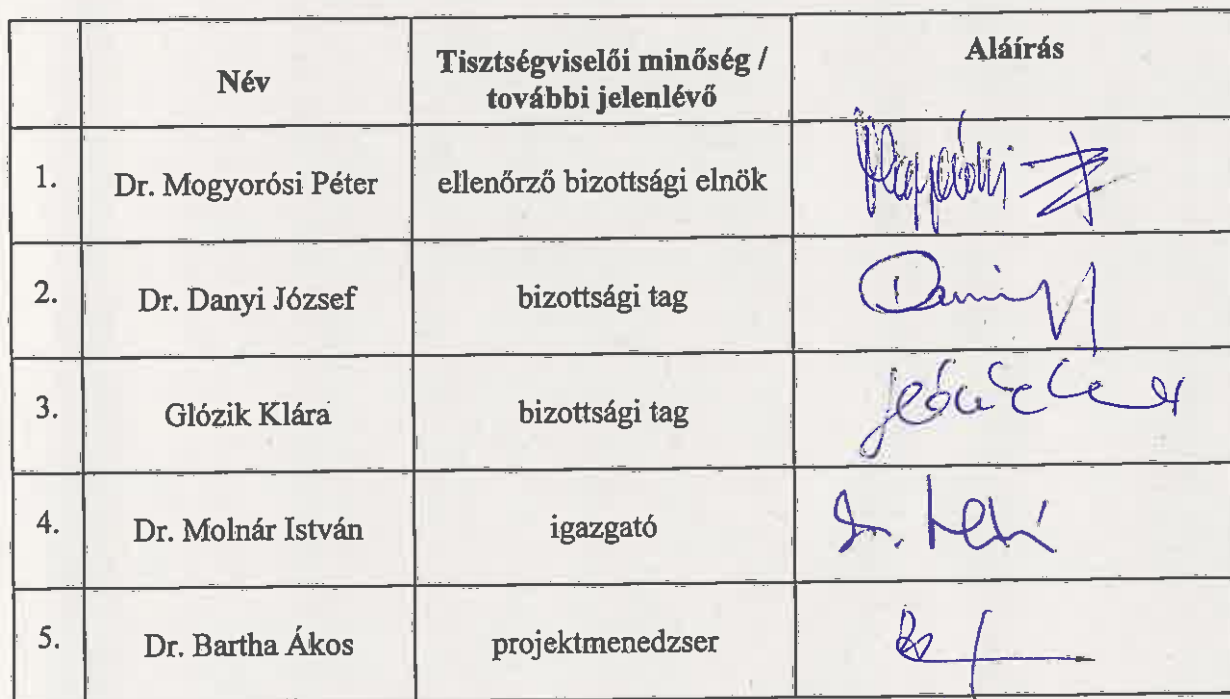 Név
Tisztségviselői minőség /
további jelenlévő
Aláírás
1. Dr. Mogyorósi Péter ellenőrző bizottsági elnök
2. Dr. Danyi József bizottsági tag
3. Glózik Klára bizottsági tag
4. Dr. Molnár István igazgató
5. Dr. Bartha Ákos projektmenedzser